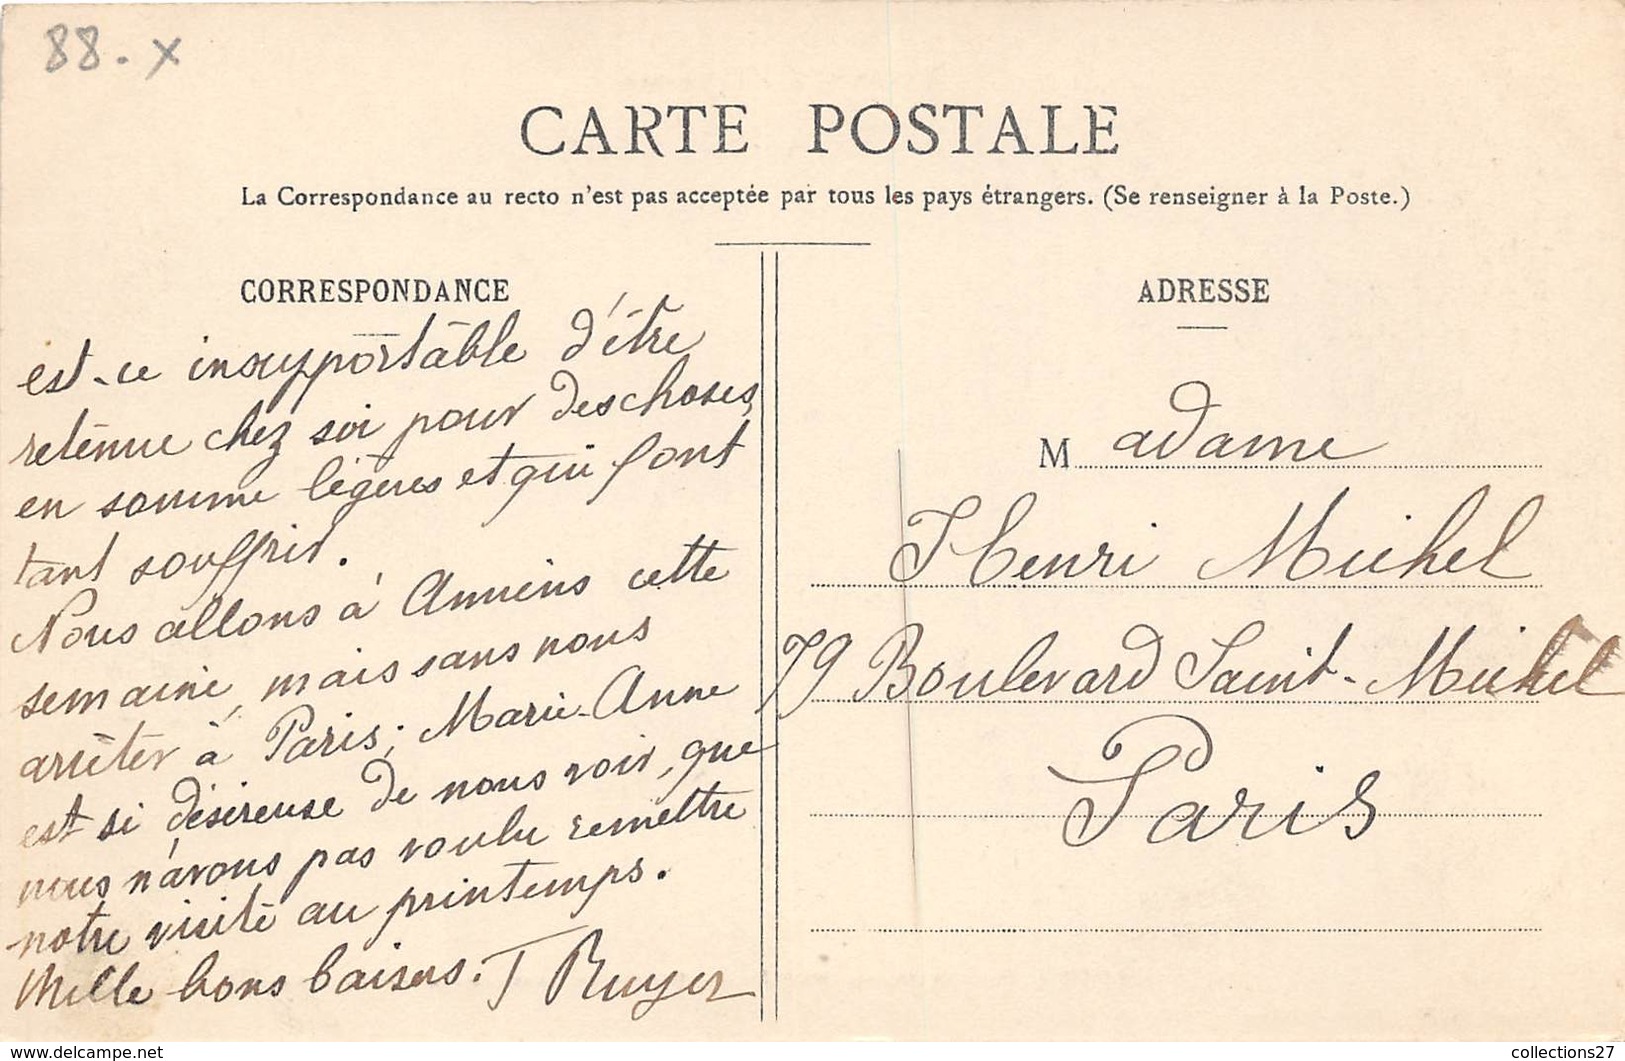 88. x
CARTE POSTALE
La Correspondance au recto n'est pas acceptée par tous les pays étrangers. (Se renseigner à la Poste.)
CORRESPONDANCE
est-ce insupportable d'être
retenue chez soi pour des choses
en somme légères et qui font
tant souffrir.
Nous allons à Amiens cette
semaine, mais sans nous
arrêter à Paris; Marie-Anne
est si désireuse de nous voir, que
nous n'avons pas voulu remettre
notre visite au printemps.
Mille bons baisers. T Ruyer
ADRESSE
Madame
Henri Michel
79 Boulevard Saint-Michel
Paris
collections27
www.delcampe.net